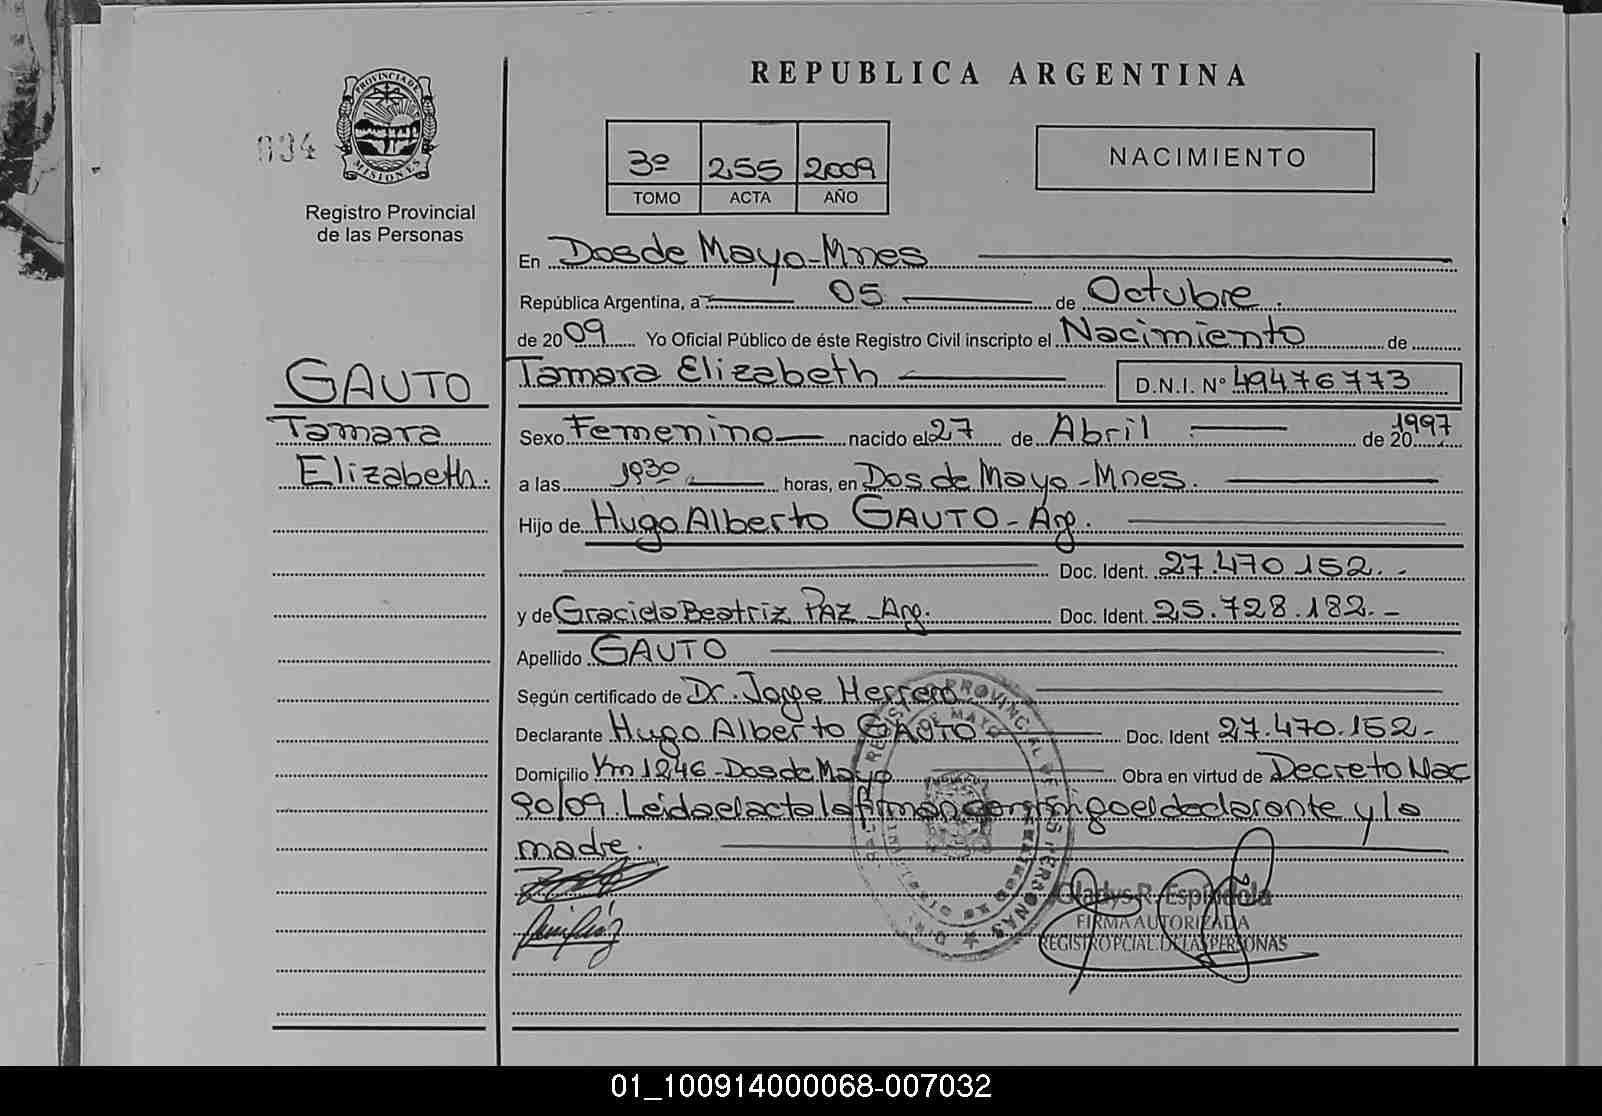 REPUBLICA ARGENTINA
PROVINCIA DE
MISIONES
034
3º 255 2009
TOMO ACTA AÑO
NACIMIENTO
Registro Provincial
de las Personas
En Dos de Mayo - Mnes
República Argentina, a 05 de Octubre.
de 2009 Yo Oficial Público de éste Registro Civil inscripto el Nacimiento de
GAUTO
Tamara
Elizabeth.
Tamara Elizabeth D.N.I. Nº 49476773
Sexo Femenino nacido el 27 de Abril de 20 1997
a las 1930 horas, en Dos de Mayo - Mnes.
Hijo de Hugo Alberto GAUTO - Arg.
Doc. Ident. 27.470.152.-
y de Graciela Beatriz PAZ - Arg. Doc. Ident. 25.728.182.-
Apellido GAUTO
Según certificado de Dr. Jorge Herrero
Declarante Hugo Alberto GAUTO Doc. Ident 27.470.152-
Domicilio Km 1246 - Dos de Mayo Obra en virtud de Decreto Nac
90/09. Leida el acta la firman conmigo el declarante y la
madre.
REGISTRO PROVINCIAL DE LAS PERSONAS
DE MAYO
Gladys R. Espindola
FIRMA AUTORIZADA
REGISTRO PCIAL. DE LAS PERSONAS
01_100914000068-007032